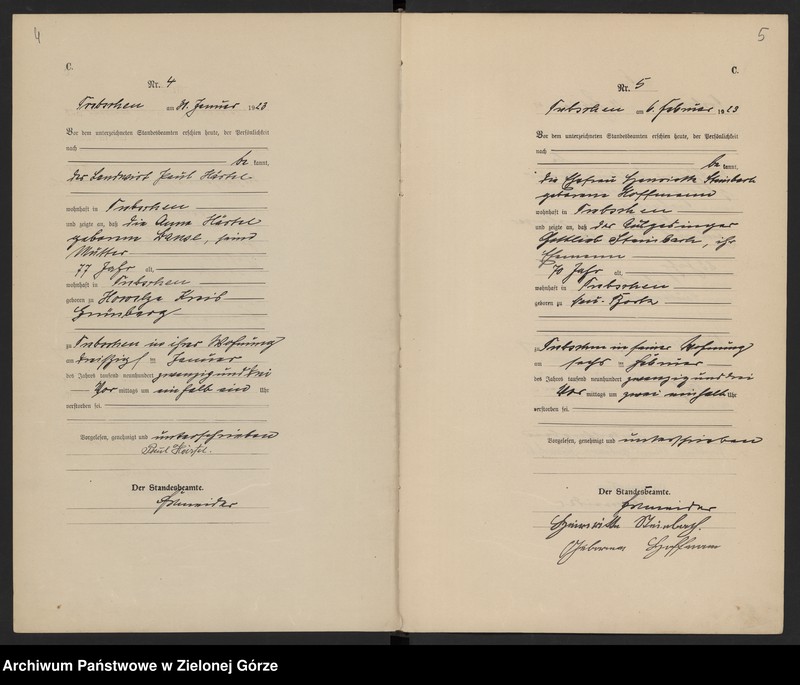 4
C.
Nr. 4
Trebschen am 31. Januar 1923
Vor dem unterzeichneten Standesbeamten erschien heute, der Persönlichkeit
nach
be kannt,
der Landwirt Paul Härtel
wohnhaft in Trebschen
und zeigte an, daß die Anna Härtel
geborene, seine
Mutter
77 Jahr alt,
wohnhaft in Trebschen
geboren zu Kreis
Grünberg
zu Trebschen in ihrer Wohnung
am dreißigsten Januar
des Jahres tausend neunhundert zwanzig und drei
Vor mittags um einhalb ein Uhr
verstorben sei.
Vorgelesen, genehmigt und unterschrieben
Paul Härtel.
Der Standesbeamte.
Schneider
5
C.
Nr. 5
Trebschen am 6. Februar 1923
Vor dem unterzeichneten Standesbeamten erschien heute, der Persönlichkeit
nach
be kannt,
die Ehefrau Henriette Steinbach
geborene Hoffmann
wohnhaft in Trebschen
und zeigte an, daß der Auszgedinger
Gottlieb Steinbach, ihr
Ehemann
70 Jahr alt,
wohnhaft in Trebschen
geboren zu Neu-
zu Trebschen in seiner Wohnung
am sechs ten Februar
des Jahres tausend neunhundert zwanzig und drei
Vor mittags um zwei einhalb Uhr
verstorben sei.
Vorgelesen, genehmigt und unterschrieben
Der Standesbeamte.
Schneider
Henriette Steinbach.
Geborene Hoffmann
Archiwum Państwowe w Zielonej Górze